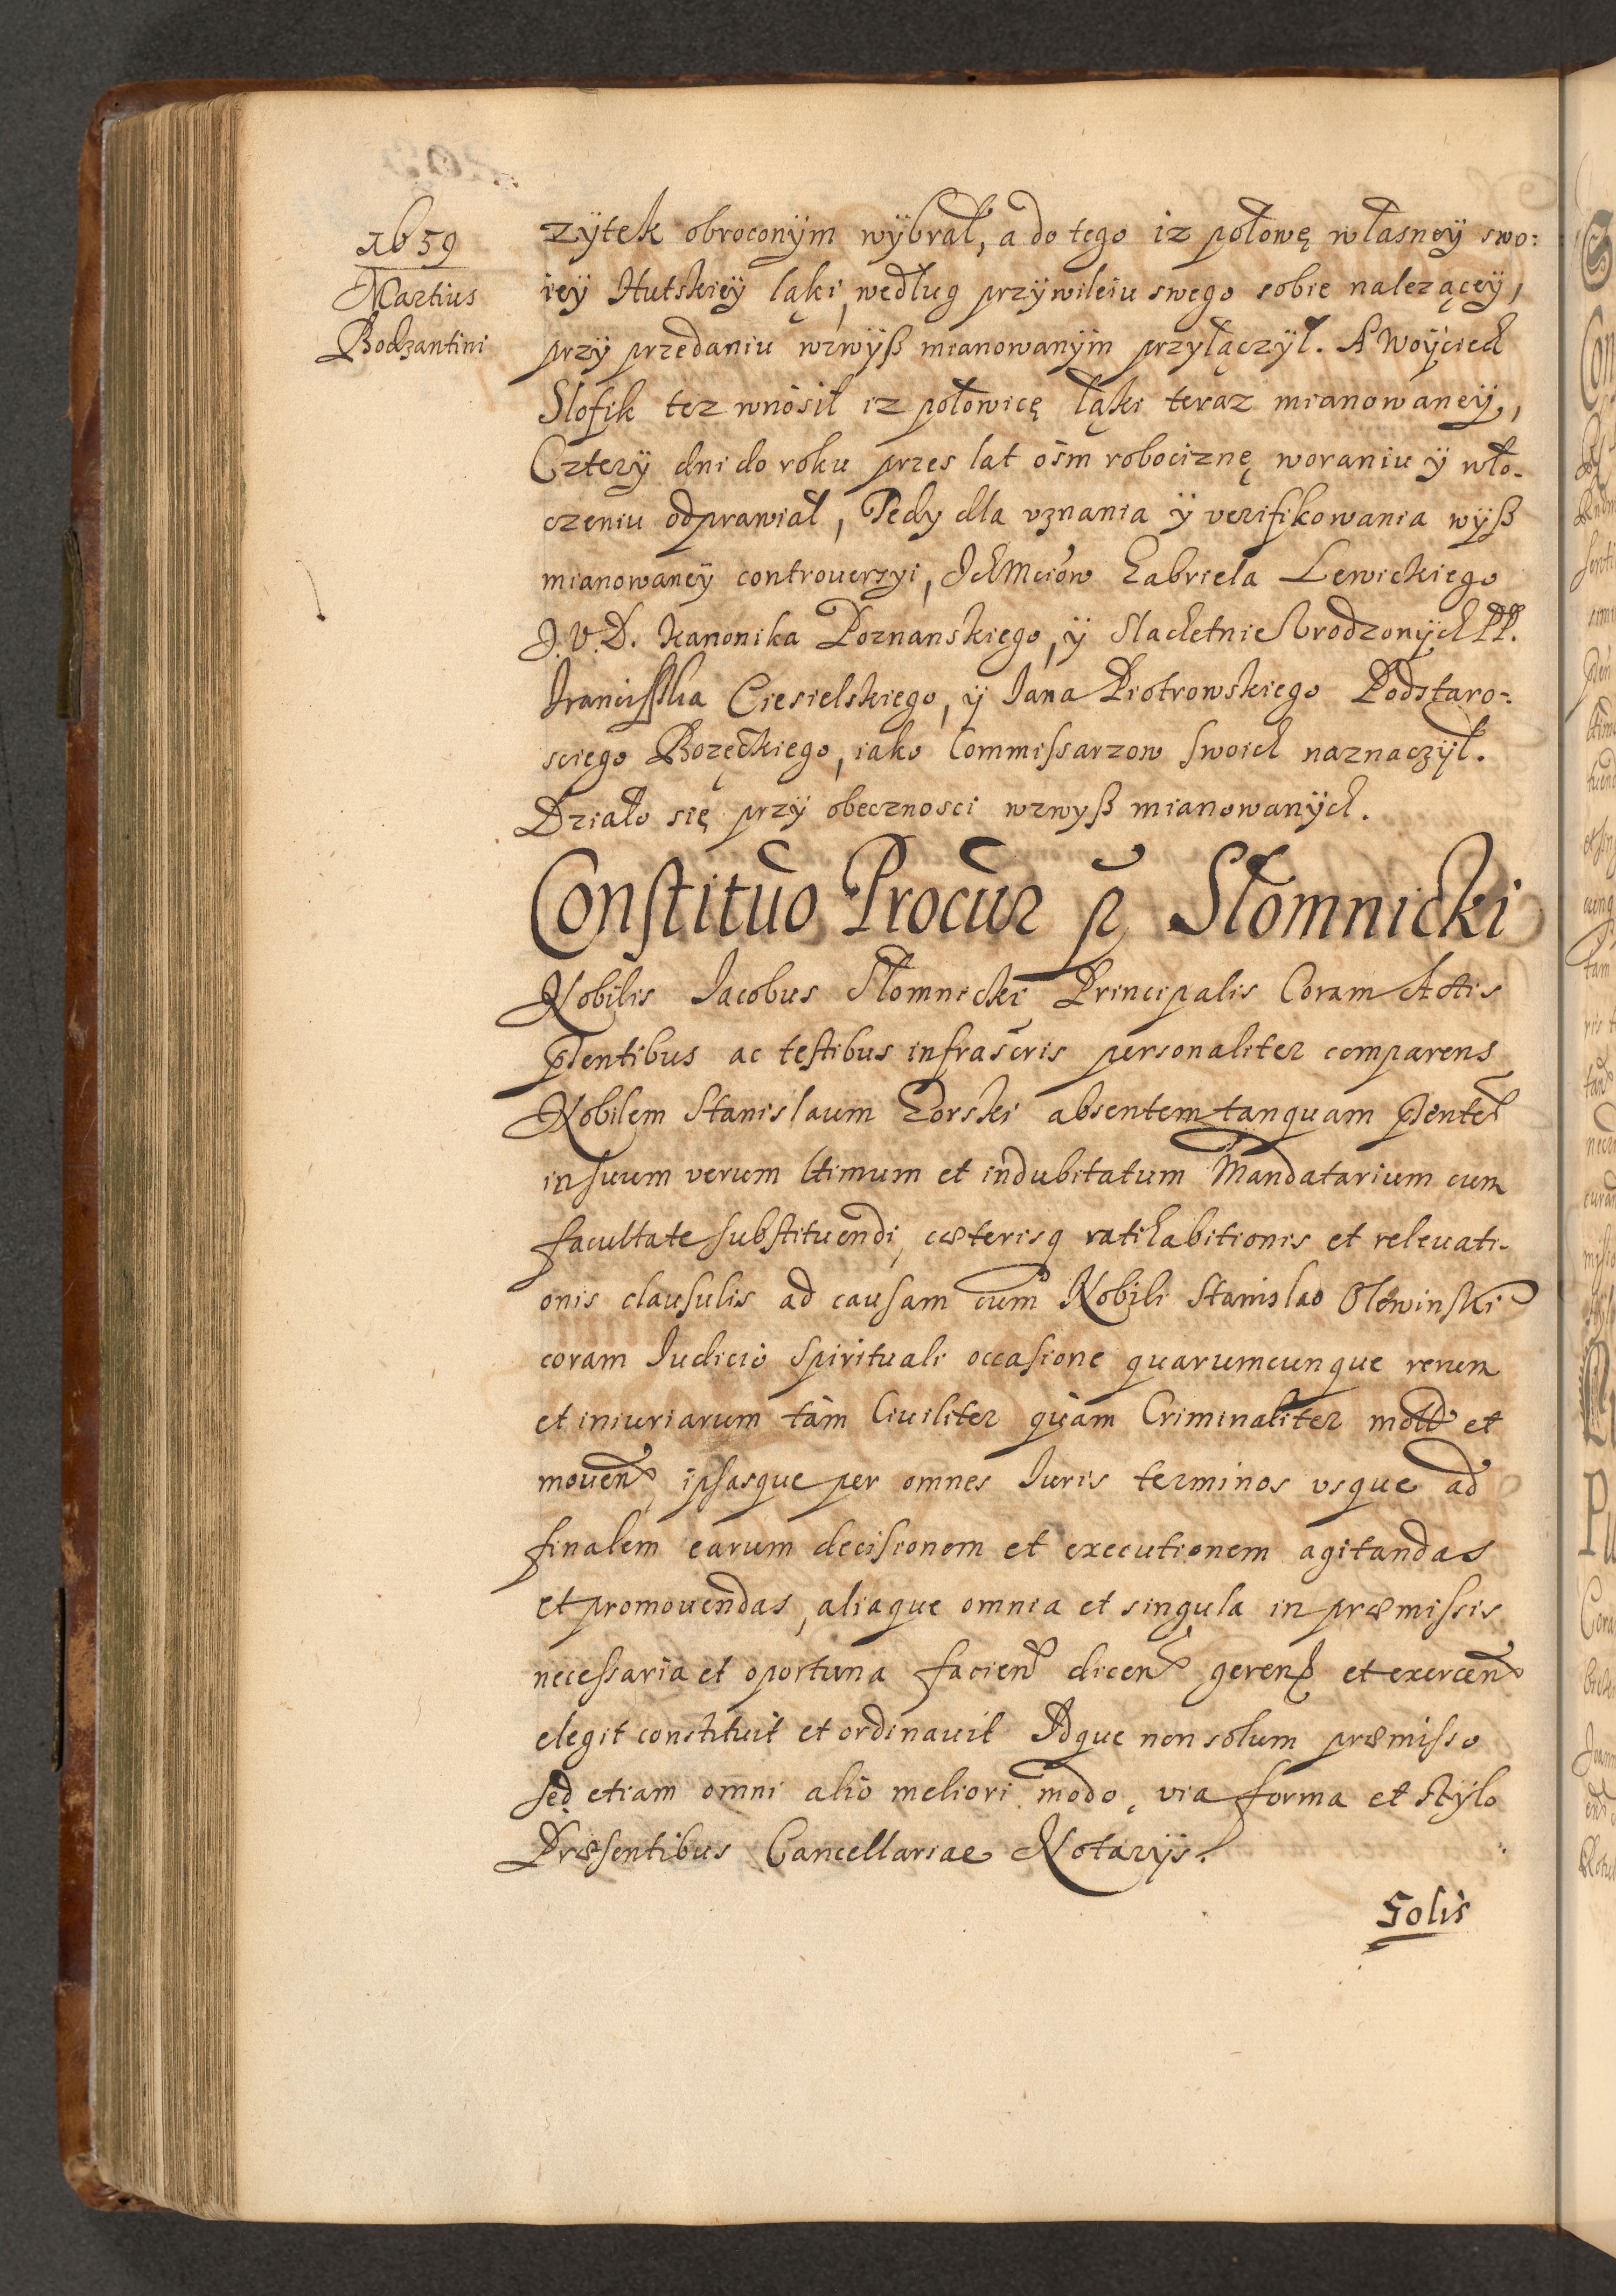 1659
Martius
Bodzantini
zÿtek obroconÿm wÿbrał, a do tego iz połowę własneÿ swo:
ieÿ Hutskieÿ ląki, według przÿwileiu swego sobie naleząceÿ,
przÿ przedaniu wzwÿß mianowanÿm przyłączÿł. A Woÿciech
Slofik tez wnosił iz połowicę łąki teraz mianowaneÿ,
Czterÿ dni do roku przes lat ośm robociznę woraniu ÿ wło-
czeniu odprawiał, Tedy dla vznania ÿ verifikowania wÿß
mianowaneÿ controuerzyi, IchMciów Gabriela Lewickiego
J. V. D. Kanonika Poznanskiego, ÿ Slachetnie Vrodzonÿch PP.
Franciszka Ciesielskiego, ÿ Iana Piotrowskiego Podstaro-
sciego Bozęckiego, iako Commissarzow swoich naznaczÿł.
Działo się przÿ obecznosci wzwyß mianowanÿch.
Constituo Procur p Słomnicki
Nobilis Iacobus Słomnicki Principalis Coram Actis
pſentibus ac testibus infrascris personaliter comparens
Nobilem Stanislaum Gorski absentem tanquam pſentem
in suum verum ltimum et indubitatum Mandatarium cum
facultate substituendi, cæterisq ratihabitionis et releuati-
onis clausulis ad causam cum Nobili Stanislao Olewinski
coram Iudicio Spirituali occasione quarumcunque rerum
et iniuriarum tàm Ciuiliter quàm Criminaliter mott et
mouen, ipsasque per omnes Iuris terminos vsque ad
finalem earum decisionem et executionem agitandas
et promouendas, aliaque omnia et singula in præmissis
necessaria et oportuna facien dicen geren et exercen
elegit constituit et ordinauit Idque non solum præmisso
sed etiam omni alio meliori modo, via forma et stÿlo
Præsentibus Cancellariae Notarÿs.
Solis